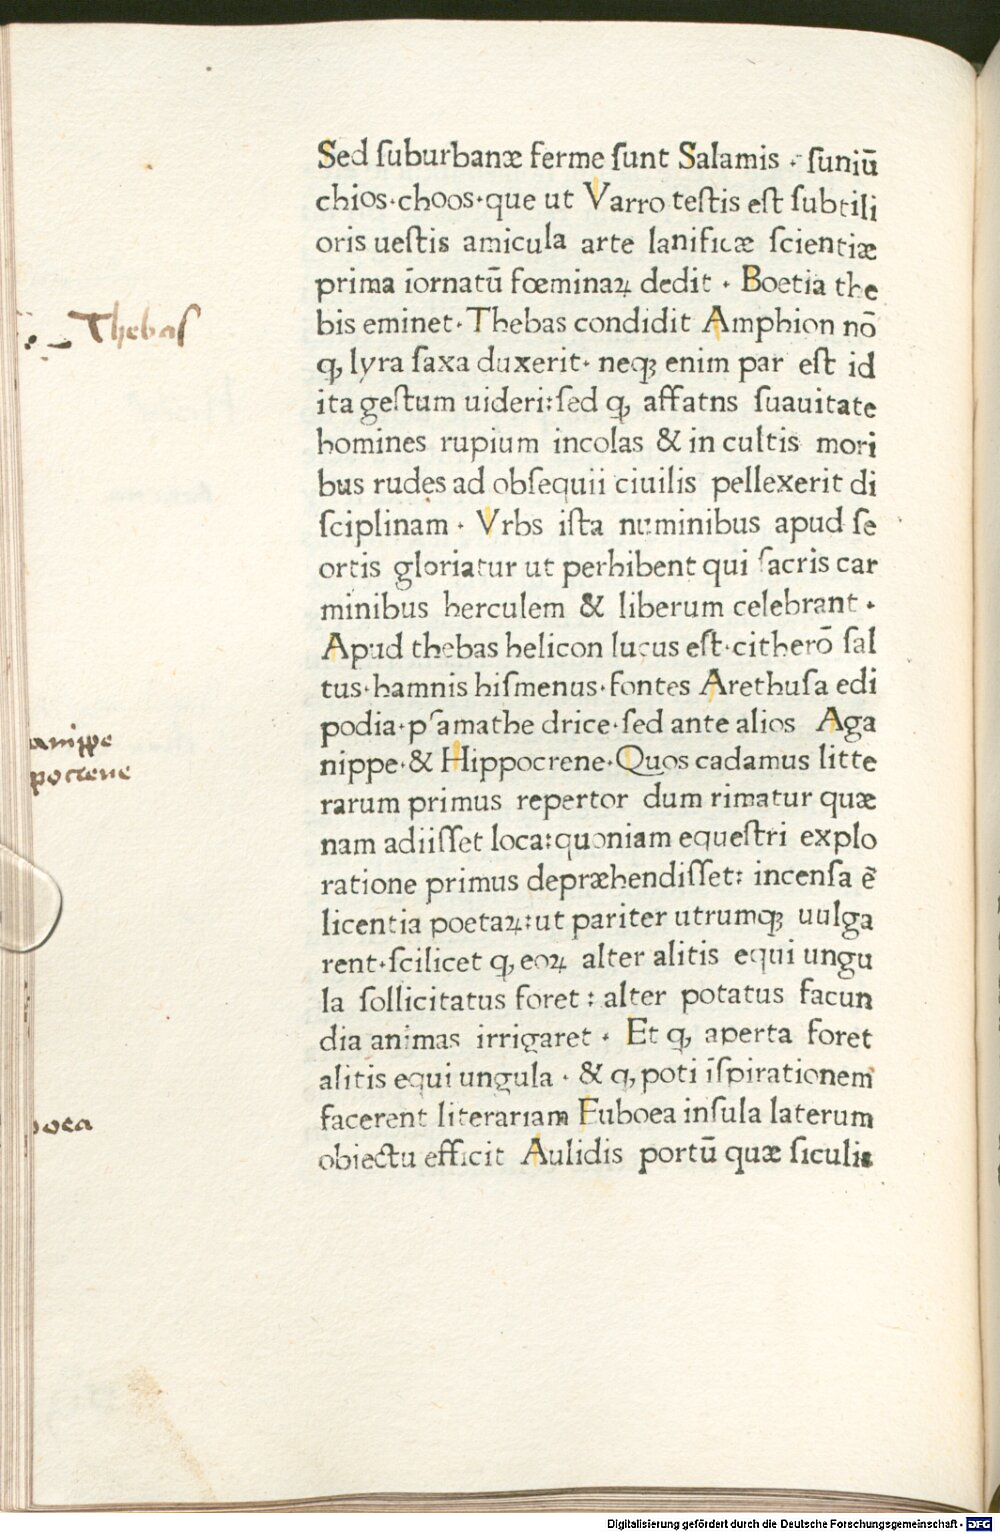 Sed ſuburbanæ ferme ſunt Salamis · ſuniū
chios·choos·que ut Varro teſtis eſt ſubtili
oris ueſtis amicula arte lanificæ ſcientiæ
prima ĩornatū fœminaꝝ dedit · Boetia the
bis eminet· Thebas condidit Amphion nō
ꝙ lyra ſaxa duxerit· neqꝫ enim par eſt id
ita geſtum uideri:ſed ꝙ affatns ſuauitate
homines rupium incolas & in cultis mori
bus rudes ad obſequii ciuilis pellexerit di
ſciplinam · Vrbs iſta numinibus apud ſe
ortis gloriatur ut perhibent qui ſacris car
minibus herculem & liberum celebrant ·
Apud thebas helicon lucus eſt·citherō ſal
tus·hamnis hiſmenus·fontes Arethuſa edi
podia·pſamathe drice·ſed ante alios Aga
nippe·& Hippocrene·Quos cadamus litte
rarum primus repertor dum rimatur quæ
nam adiiſſet loca:quoniam equeſtri explo
ratione primus depræhendiſſet: incenſa ē
licentia poetaꝝ:ut pariter utrumqꝫ uulga
rent·ſcilicet ꝙ eoꝝ alter alitis equi ungu
la ſollicitatus foret : alter potatus facun
dia animas irrigaret · Et ꝙ aperta foret
alitis equi ungula · & ꝙ poti ĩſpirationem
facerent literariam Euboea inſula laterum
obiectu efficit Aulidis portū quæ ſiculis
Thebas
anippe
pocrene
boea
Digitalisierung gefördert durch die Deutsche Forschungsgemeinschaft - DFG